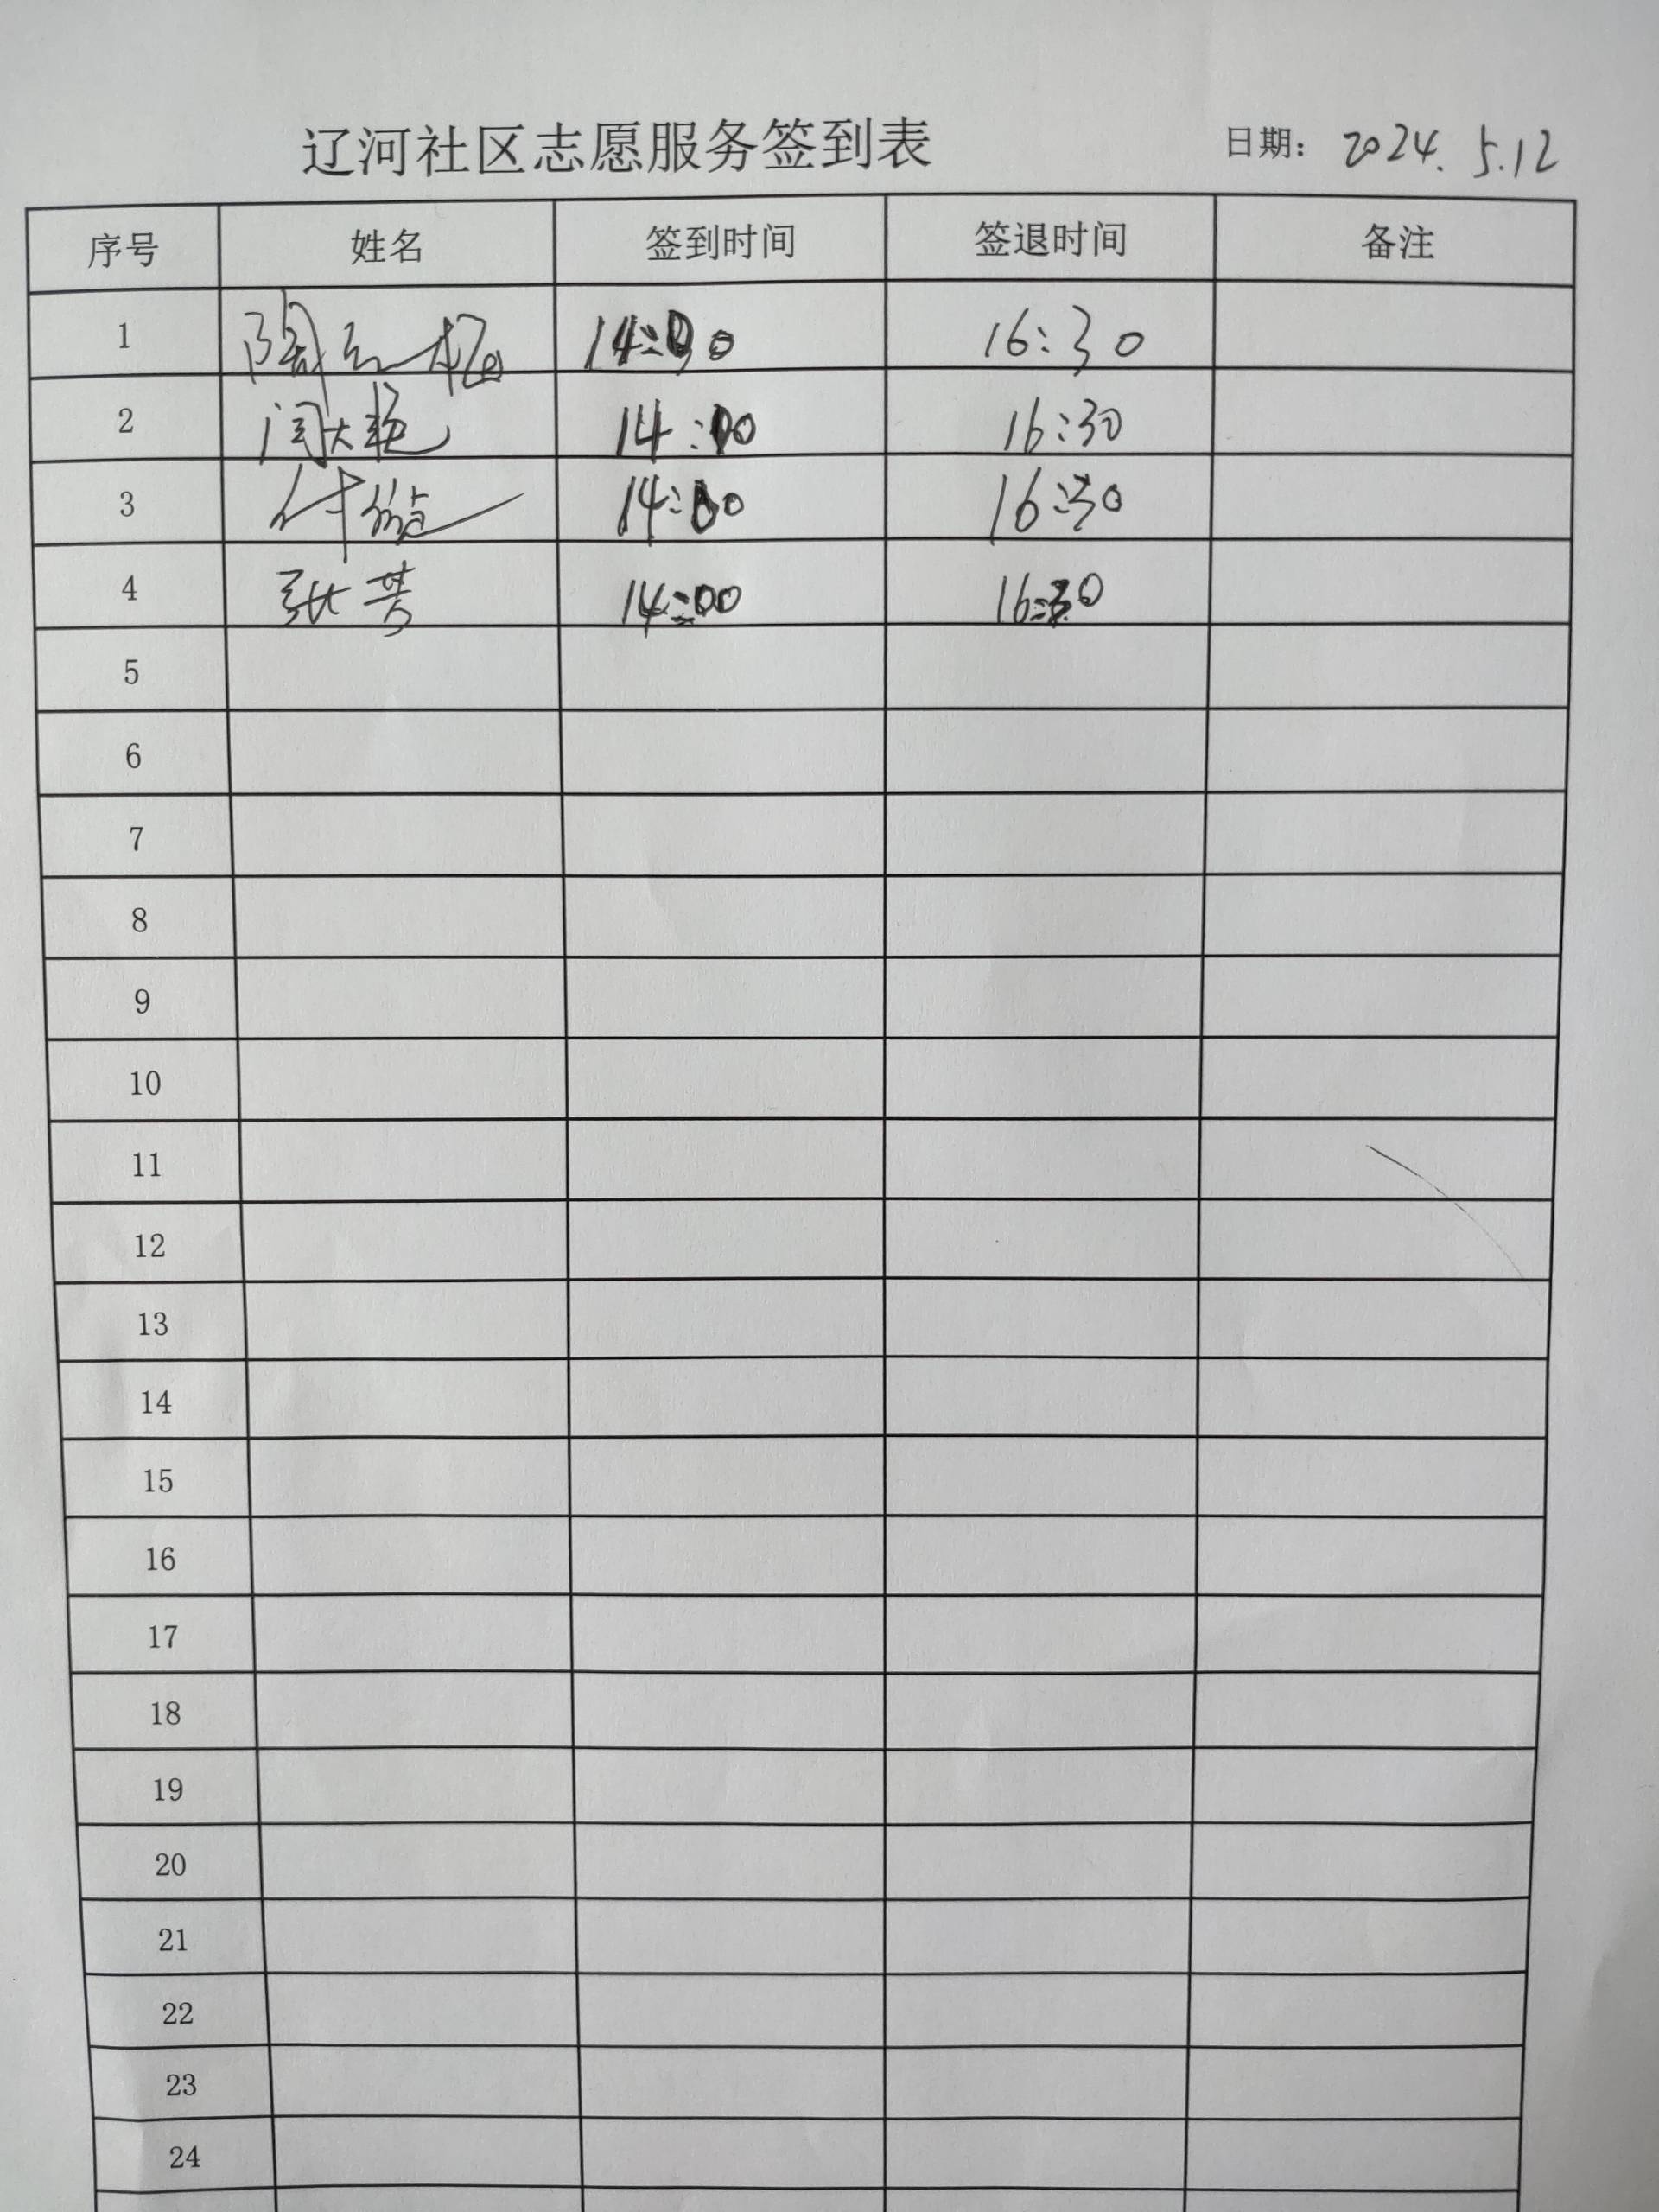 辽河社区志愿服务签到表 日期: 2024.5.12
序号 姓名 签到时间 签退时间 备注
1 14:00 16:30
2 14:00 16:30
3 14:00 16:30
4 张芳 14:00 16:30
5
6
7
8
9
10
11
12
13
14
15
16
17
18
19
20
21
22
23
24